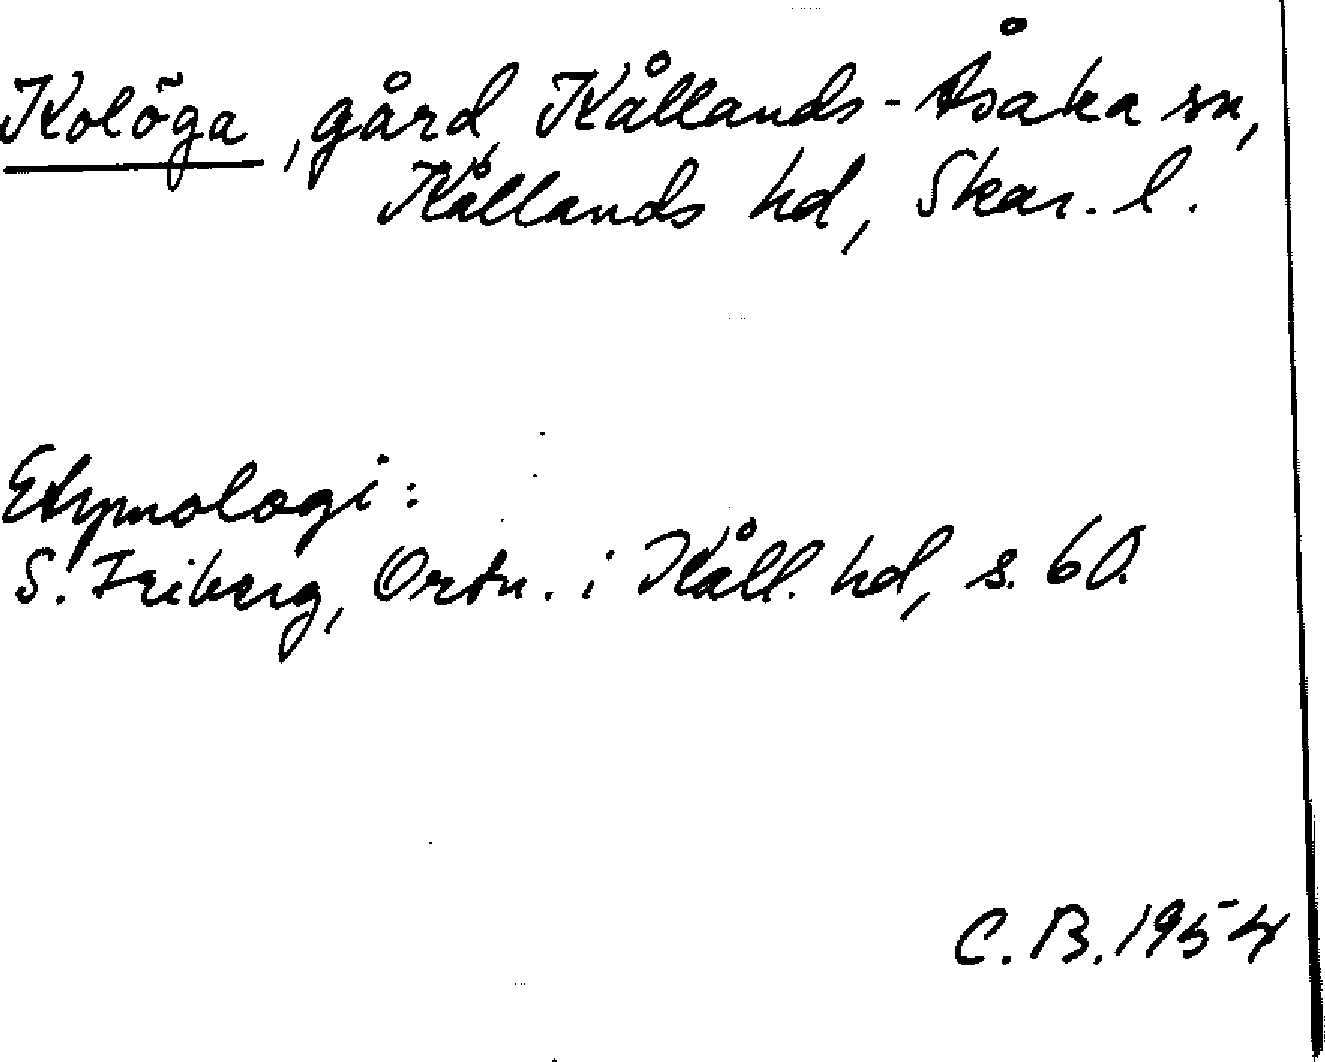 Kolöga, gård, Kållands-Åsaka sn,
Kållands hd, Skar. l.
Etymologi:
S. Friberg, Ortn. i Kåll. hd, s. 60.
C. B. 1954